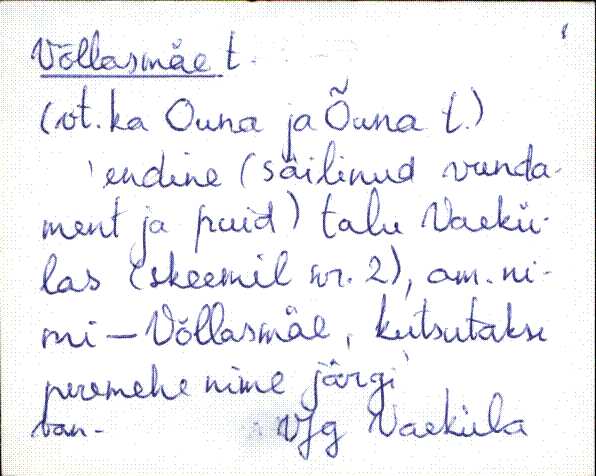 Võllasmäe t.
(vt. ka Ouna ja Õuna t.)
'endine (säilinud vunda-
ment ja puid) talu Vaekü-
las (skeemil nr. 2), am. ni-
mi – Võllasmäe, kutsutakse
peremehe nime järgi'
VJg Vaeküla